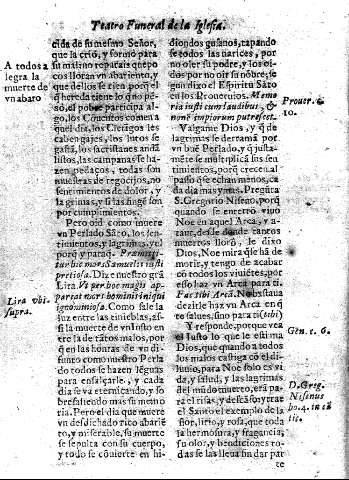 Teatro Funeral de la Iglesia.
A todos a
legra la
muerte de
vn abaro
cida de su mesmo Señor,
que la crió, y formó para
su malino reparais que po
cos lloran vn abariento, y
que dellos se rien porq̃ el
q̃ hereda tiene lo q̃ no pe-
só, el pobre participa al-
go, los Conuitos comen a
quel dia, los Clerigos lles
caben gajes, los lutos se
gastā, los sacristanes andā
listos, las campanas se ha-
zen pedaços, todas son
muestras de regocijos, no
sentimientos de dolor, y
lagrimas, y si las finge son
por cumplimientos.
Pero oid como muere
vn Perlado Sāto, los sen-
timientos, y lagrimas, y el
porq̃ y paraq̃. Præmitti-
tur hic mors Samuelis iusti
pretiosa. Dize nuestro grā
Lira
Lira vbi
supra.
Vt per hoc magis ap-
pareat mors hominis iniqui
ignominiosa. Como sale la
luz entre las tinieblas, así-
si la muerte de vn Iusto en
tre la de tātos malos, por
q̃ en las honras de vn di-
funto como nuestro Perla
do todos se hazen lēguas
para ensalçarle, y cada
dia se va eternizando, y so
bresaliendo mas su memo
ria. Pero el dia que muere
vn desdichado rico abariē
to, y miserable, su muerte
se sepulta con su cuerpo,
y todo se cōuierte en hi-
diondos gusanos, tapando
se todos las narices, por
no oler su podre, y los oi-
dos por no oir su nōbre, se
gun dixo el Espiritu Sāto
en los Prouerbios. Memo
ria iusti cum laudibus, &
nome impiorum putrescet.
Prouer. c.
10.
Valgame Dios, y q̃ de
lagrimas se derramā por
vn buē Perlado, y q̃ justa-
mēte se multiplicā sus sen
timientos, porq̃ crecen al
passo q̃ se echan menos, ca
da dia mas y mas. Pregūta
S. Gregorio Niseno, porq̃
quando se encerró viuo
Noe en aquel Arca, y a-
taut, desde donde tantos
muertos lloró, le dixo
Dios, Noe mira q̃ se há de
morir, y tengo de acabar
cō todos los viuiētes, por
esso haz vn Arca para ti.
Fac tibi Arcā. No bastaua
dezirle haz vn Arca en q̃
te salues, sino para ti (tibi)
Y responde, porque vea
el Iusto lo que le estima
Dios, que quando a todos
los malos castiga cō el di-
luuio, para Noe solo es vi
da, y salud, y las lagrimas
del mūdo muerto, erā pa-
ra el risas, y descāso; y trae
el Santo el exemplo de la
flor, lirio, y rosa, que toda
la hermosura, y fragancia,
su olor, y bendiciones ro-
das se las lleua sin dar par
Gen. c. 6.
D. Greg.
Nisenus
ho. 4. in cā
tic.
te